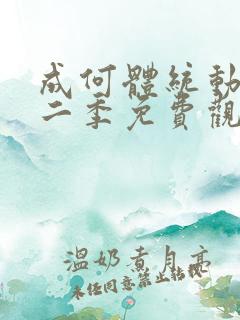 成何體統動
二季免費觀
溫奶煮月亮
未经同意禁止转载